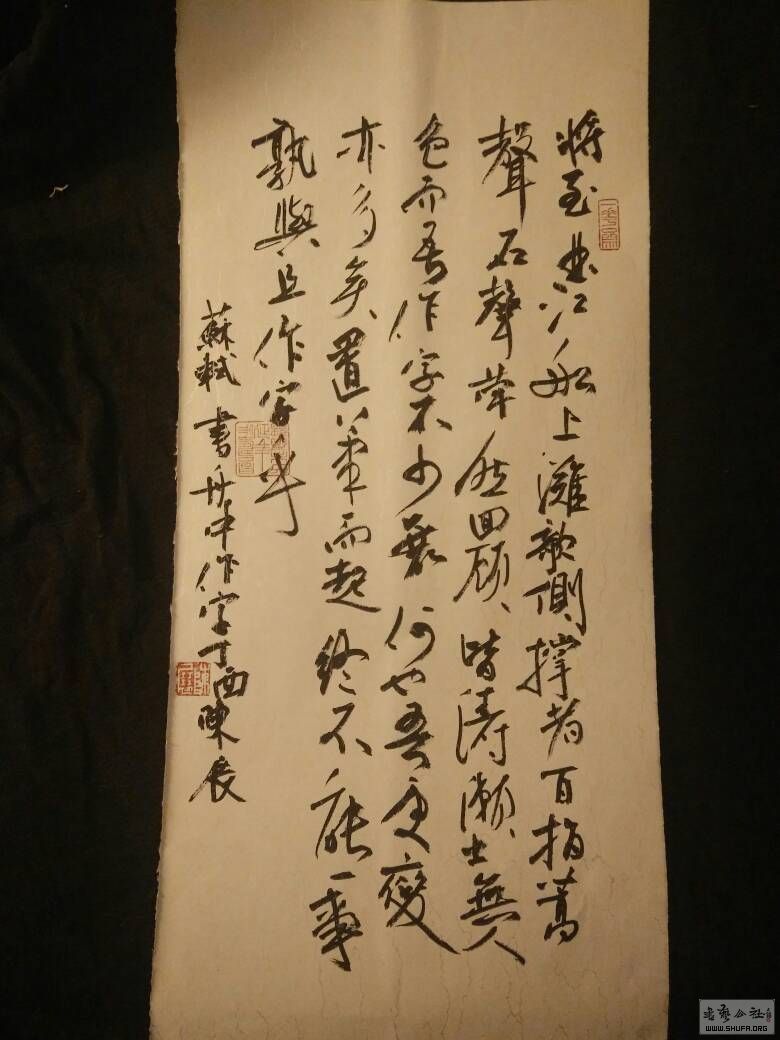 將至曲江船上灘欹側撑者百指蒿
聲石聲犖然四顧皆濤瀨士無人
色而吾作字不少衰何也吾更變
亦多矣置筆而起終不能一事
孰與且作字乎
蘇軾書舟中作字丁酉陳展
WWW.SHUFA.ORG